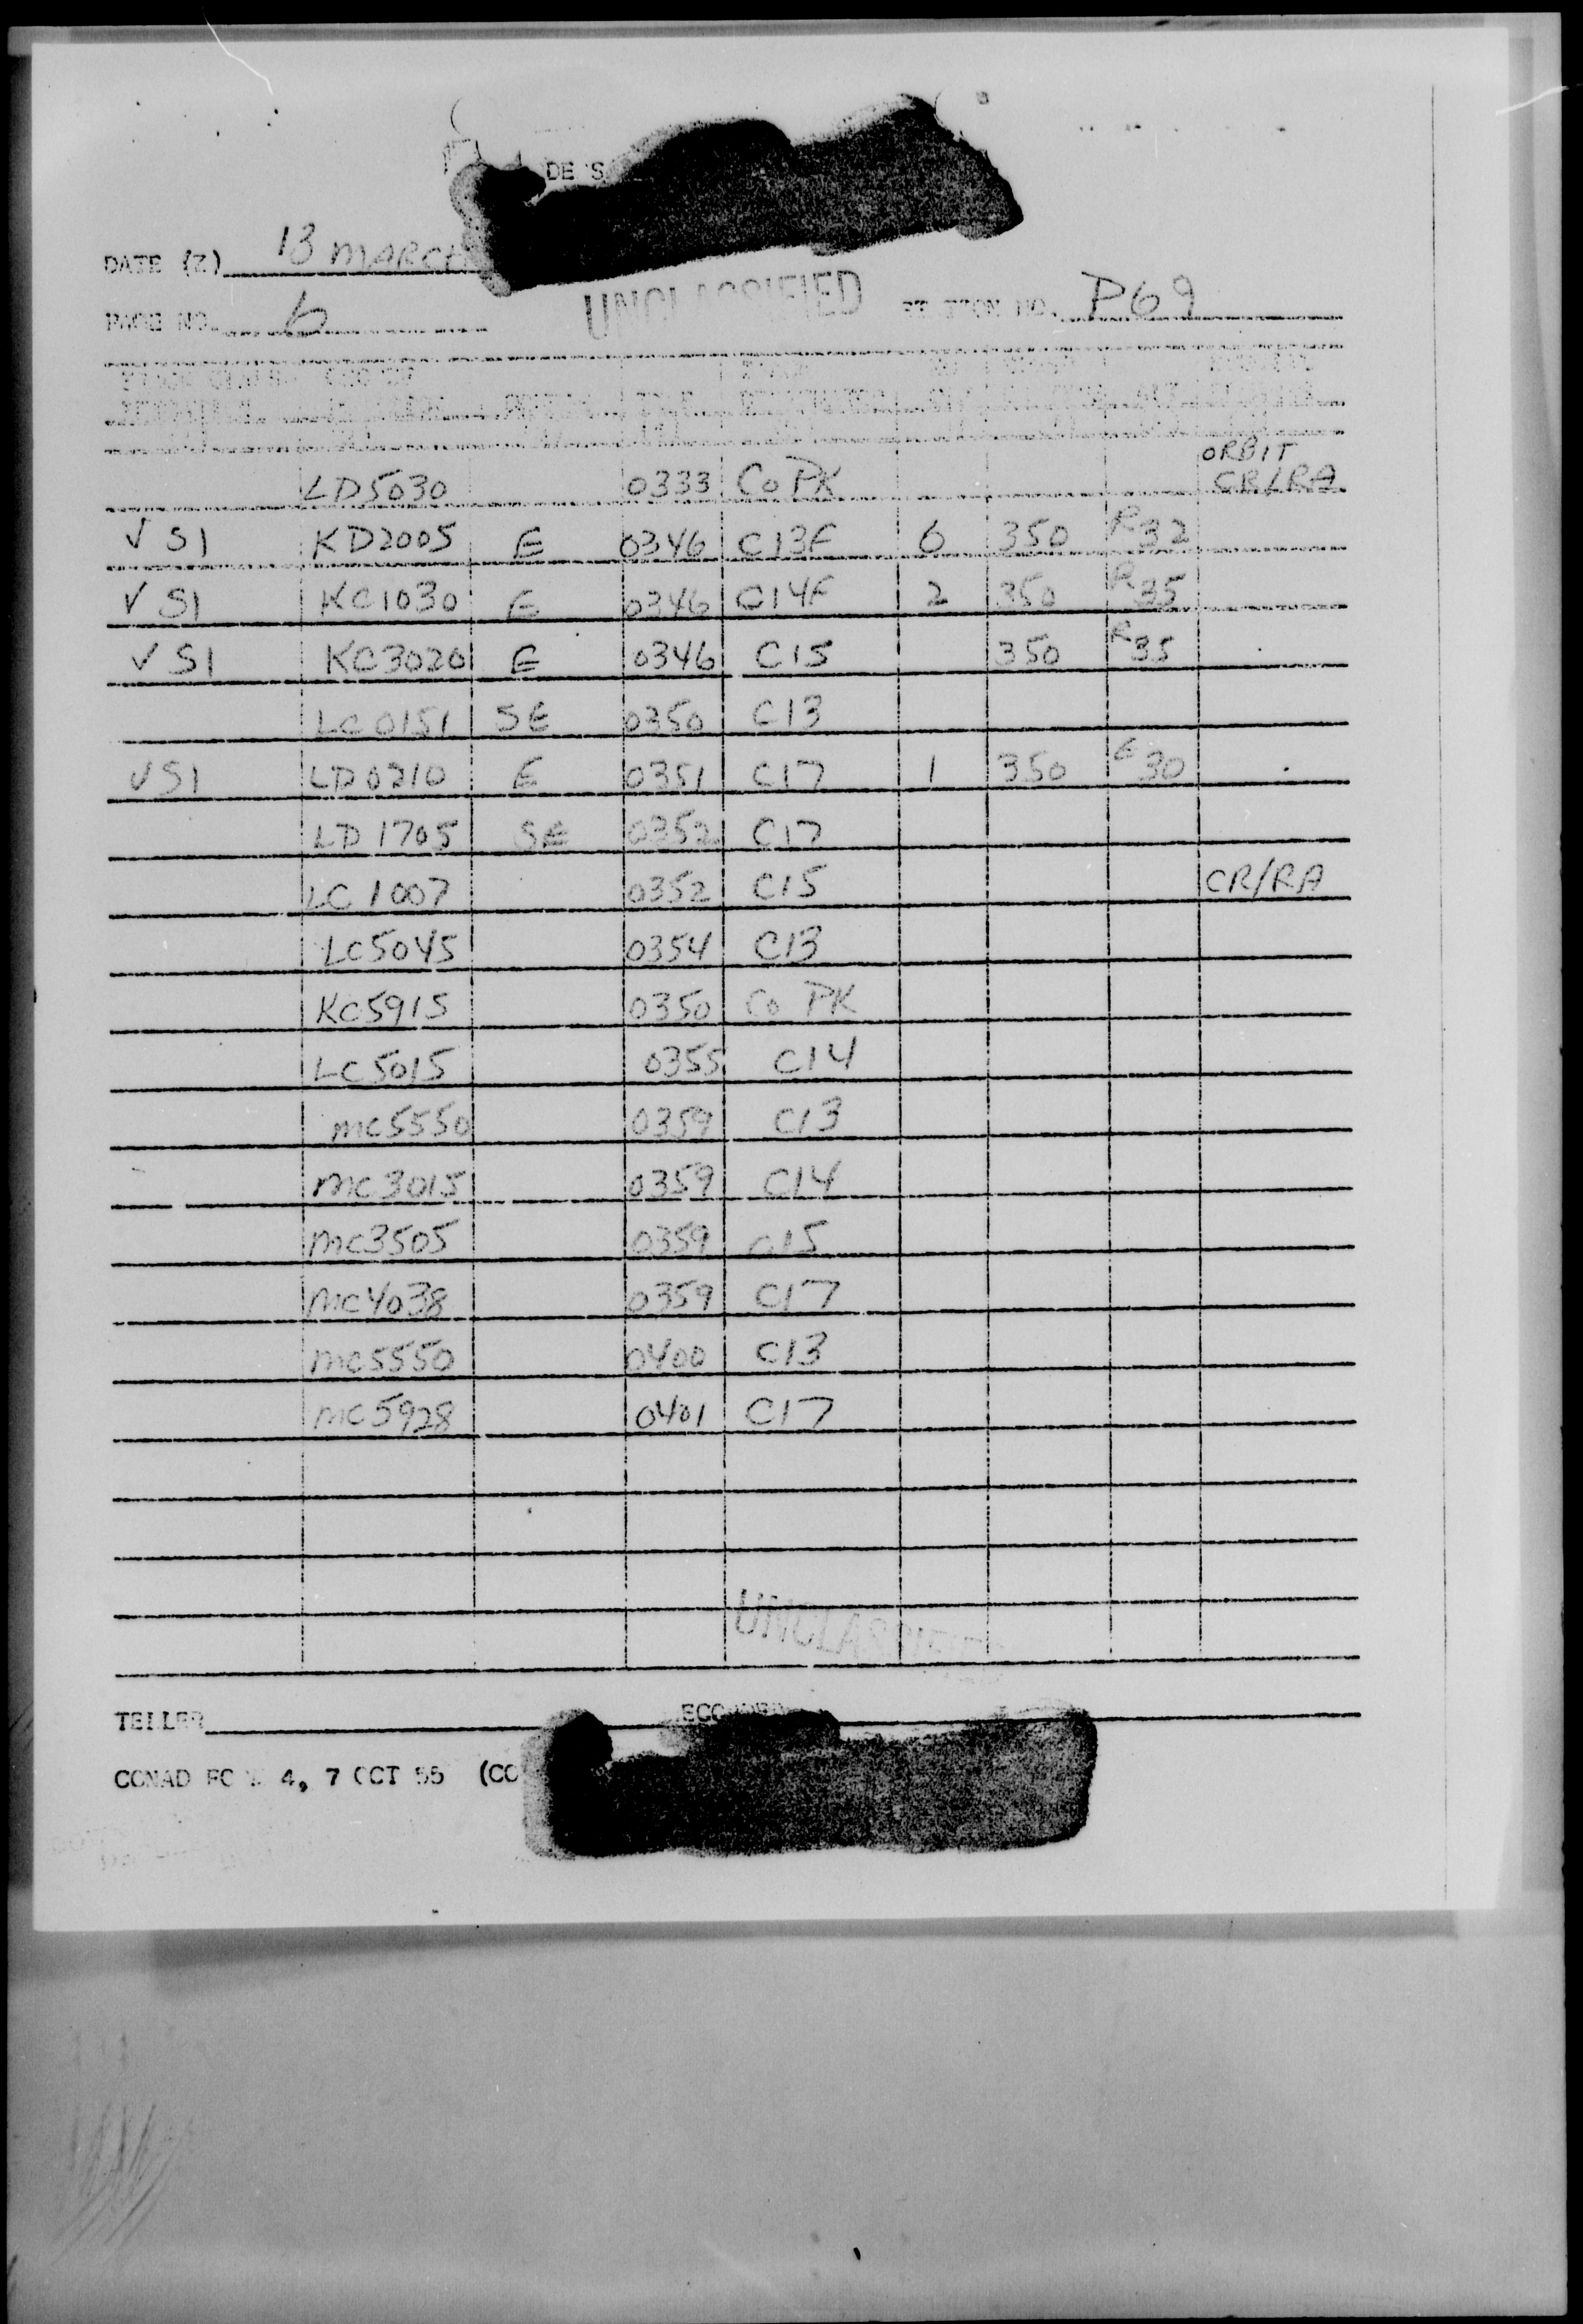 DE S
DATE (Z) 13 MARCH
PAGE NO. 6 UNCLASSIFIED STATION NO. P69
ORBIT
LD5030 0333 Co PK CR/RA
✓ S1 KD2005 E 0346 C13F 6 350 R32
✓ S1 KC1030 E 0346 C14F 2 350 R35
✓ S1 KC3020 E 0346 C15 350 R35
LC0151 SE 0350 C13
✓ S1 LD0210 E 0351 C17 1 350 E30
LD 1705 SE 0352 C17
LC 1007 0352 C15 CR/RA
LC5045 0354 C13
KC5915 0350 Co PK
LC5015 0355 C14
MC5550 0359 C13
MC3015 0359 C14
MC3505 0359 C15
MC4038 0359 C17
MC5550 0400 C13
MC5928 0401 C17
UNCLASSIFIED
TELLER
CONAD FORM 4, 7 OCT 55 (CO